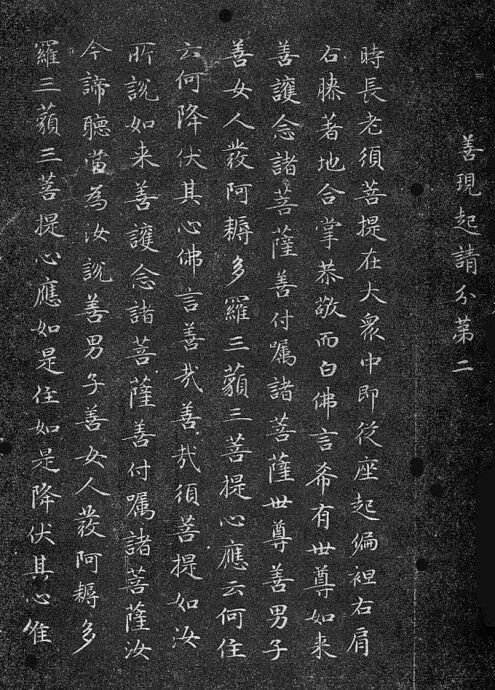 善現起請分第二
時長老須菩提在大衆中即從座起徧袒右肩
右膝著地合掌恭敬而白佛言希有世尊如来
善護念諸菩薩善付囑諸菩薩世尊善男子
善女人發阿耨多羅三藐三菩提心應云何住
云何降伏其心佛言善㢤善㢤須菩提如汝
所說如来善護念諸菩薩善付囑諸菩薩汝
今諦聽當為汝說善男子善女人發阿耨多
羅三藐三菩提心應如是住如是降伏其心唯